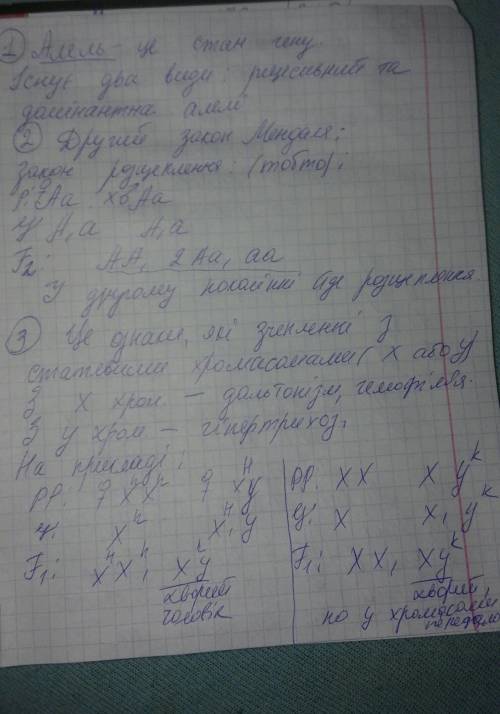 1 Алель - це стан гену.
Існує два види: рецесивний та
домінантна алелі
2 Другий закон Менделя:
Закон розщеплення: (тобто):
P: ♀Aa x ♂Aa
A, a A, a
F2: AA, 2Aa, aa
У другому поколінні йде розщеплення.
3 Це ознаки, які зчепленні з
статевими хромасомами (X або У)
З X хром. — дальтонізм, гемофілія.
З У хром — гіпертрихоз.
На прикладі:
РР. XX Xy^k
X X, y^k
F1: XX, Xy^k
хворий
чоловік
хворий,
по у хромасомі